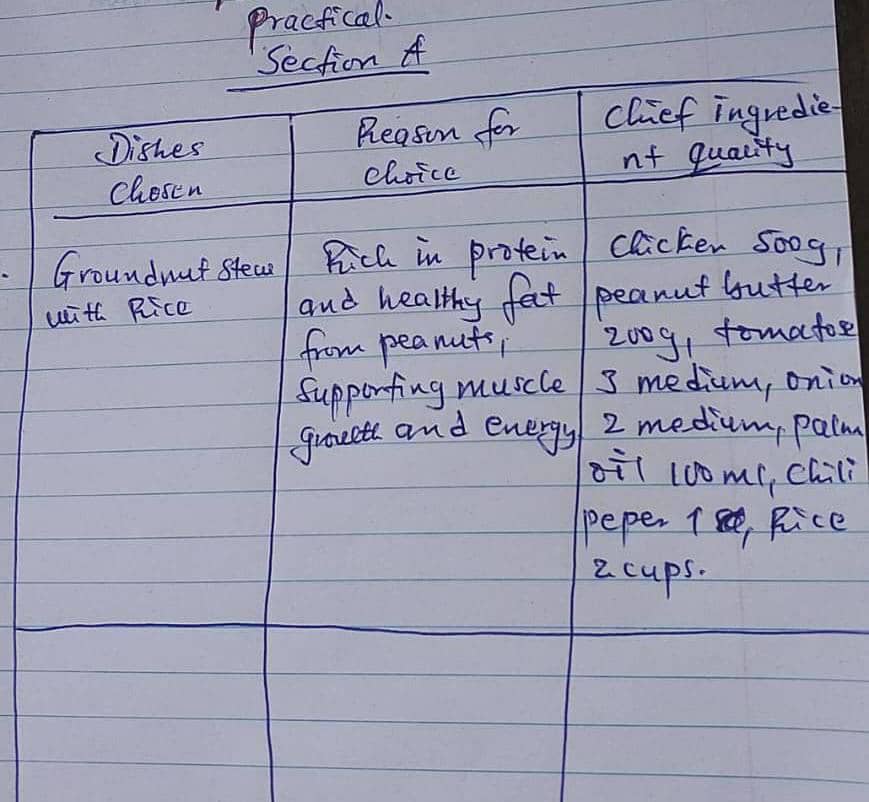 Practical.
Section A
Dishes
Chosen
Reason for
choice
Chief ingredie-
nt quality
Groundnut Stew
with Rice
Rich in protein
and healthy fat
from peanuts,
Supporting muscle
growth and energy
Chicken 500g,
peanut butter
200g, tomatoe
3 medium, onion
2 medium, palm
oil 100ml, Chili
peper 1, Rice
2 cups.